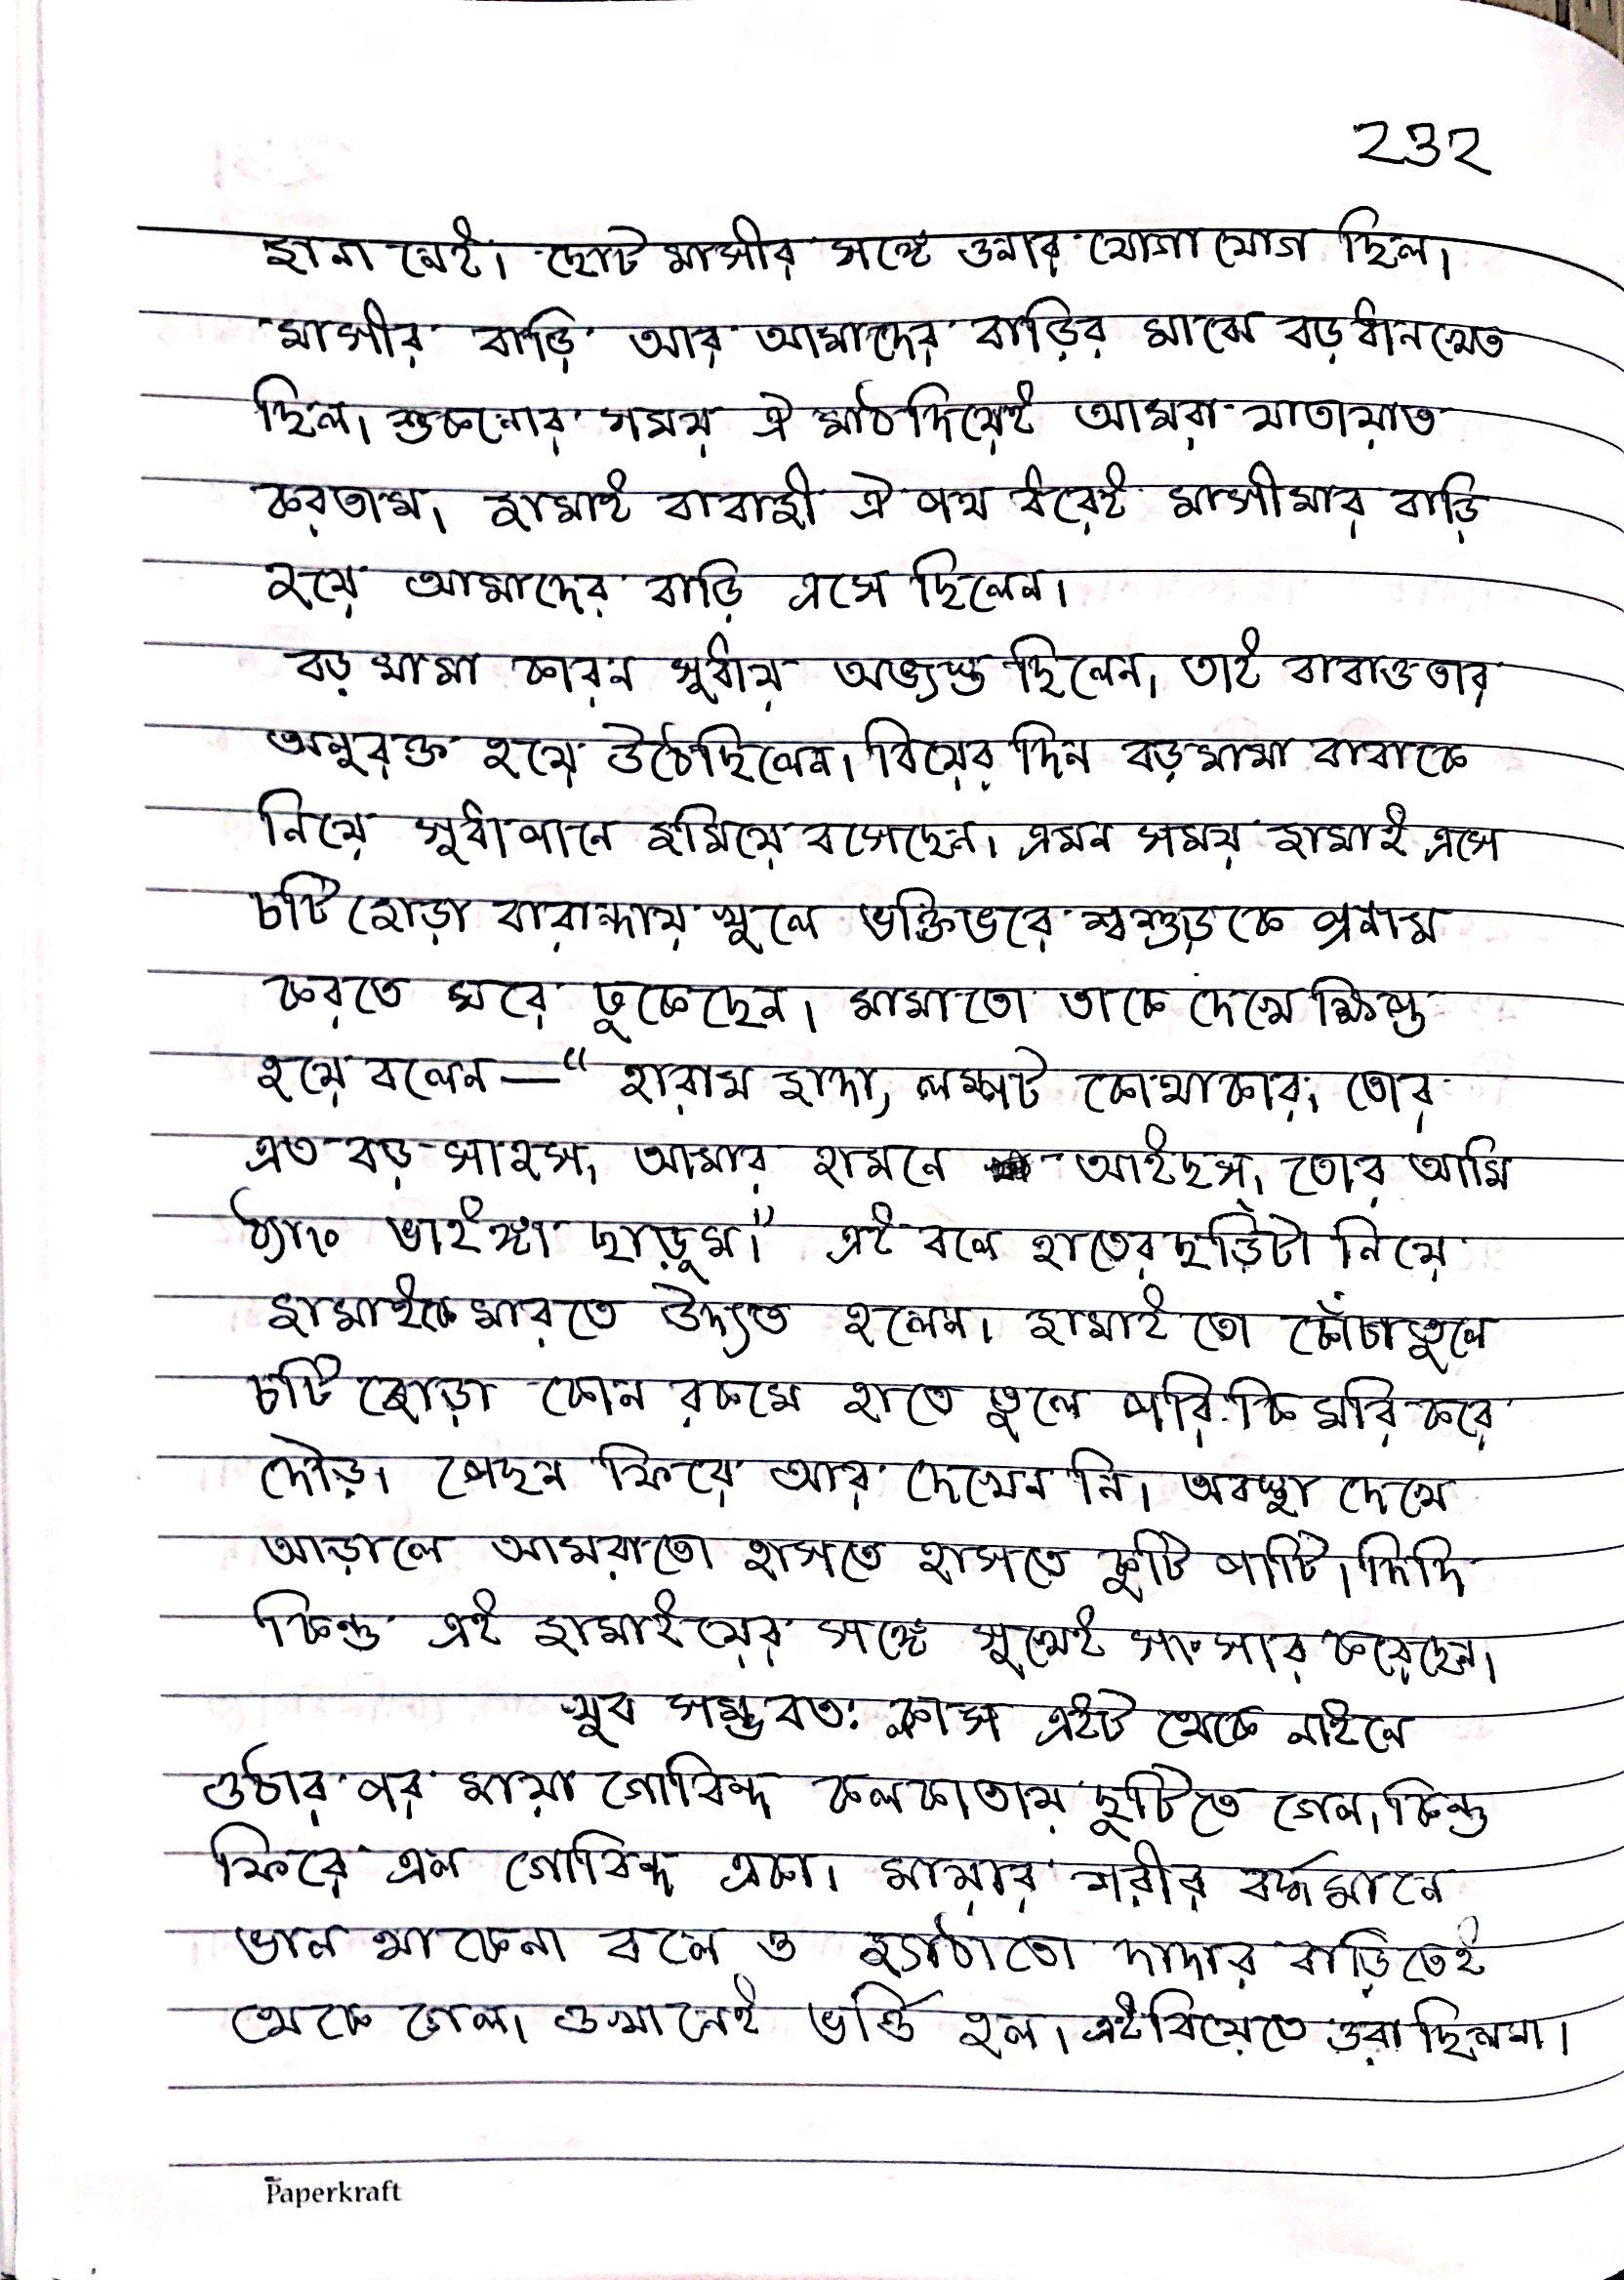 232
জানা নেই। ছোট মাসীর সঙ্গে ওনার যোগাযোগ ছিল।
মাসীর বাড়ি আর আমাদের বাড়ির মাঝে বড় ধানক্ষেত
ছিল। শুকনোর সময় ঐ মাঠ দিয়েই আমরা যাতায়াত
করতাম। জামাই বাবাজী ঐ পথ ধরেই মাসীমার বাড়ি
হয়ে আমাদের বাড়ি এসে ছিলেন।
বড় মামা কারন সুধায় অভ্যস্ত ছিলেন, তাই বাবাও তার
অনুরক্ত হয়ে উঠেছিলেন। বিয়ের দিন বড়মামা বাবাকে
নিয়ে সুধাপানে জমিয়ে বসেছেন। এমন সময় জামাই এসে
চটি জোড়া বারান্দায় খুলে ভক্তিভরে শ্বশুড়কে প্রনাম
করতে ঘরে ঢুকেছেন। মামাতো তাকে দেখে ক্ষিপ্ত
হয়ে বলেন — “হারামজাদা, লম্পট কোথাকার, তোর
এত বড় সাহস, আমার হামনে আইছস, তোর আমি
ঠ্যাং ভাইঙ্গা ছাড়ুম।” এই বলে হাতের ছড়িটা নিয়ে
জামাইকে মারতে উদ্যত হলেন। জামাই তো কোঁচা তুলে
চটি জোড়া কোন রকমে হাতে তুলে পরি কি মরি করে
দৌড়। পেছন ফিরে আর দেখেন নি। অবস্থা দেখে
আড়ালে আমরাতো হাসতে হাসতে কুটি পাটি। দিদি
কিন্তু এই জামাইয়ের সঙ্গে সুখেই সংসার করেছেন।
খুব সম্ভবতঃ ক্লাস এইট থেকে নাইনে
ওঠার পর মায়া গোবিন্দ কলকাতায় ছুটিতে গেল, কিন্তু
ফিরে এল গোবিন্দ একা। মায়ার শরীর বর্দ্ধমানে
ভাল থাকেনা বলে ও জ্যাঠাতো দাদার বাড়িতেই
থেকে গেল। ওখানেই ভর্ত্তি হল। এই বিয়েতে ওরা ছিলনা।
Paperkraft